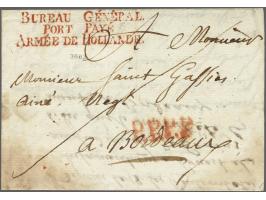 BUREAU GÉNÉRAL
PORT PAYÉ
ARMÉE DE HOLLANDE
Monsieur
Monsieur Saint Gassies
ainé Negt
a Bordeaux